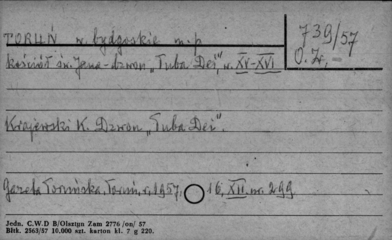 TORUŃ w. bydgoskie m.p.
739/57
O. Ze,-
kościół św. Jana - dzwon „Tuba Dei", w. XV-XVI
Krajewski K. Dzwon „Tuba Dei".
Gazeta Toruńska. Toruń, r. 1957, 16, XII. nr. 299
Jedn. C.W.D B/Olsztyn Zam 2776 /on/ 57
Bltk. 2563/57 10,000 szt. karton kl. 7 g 220.